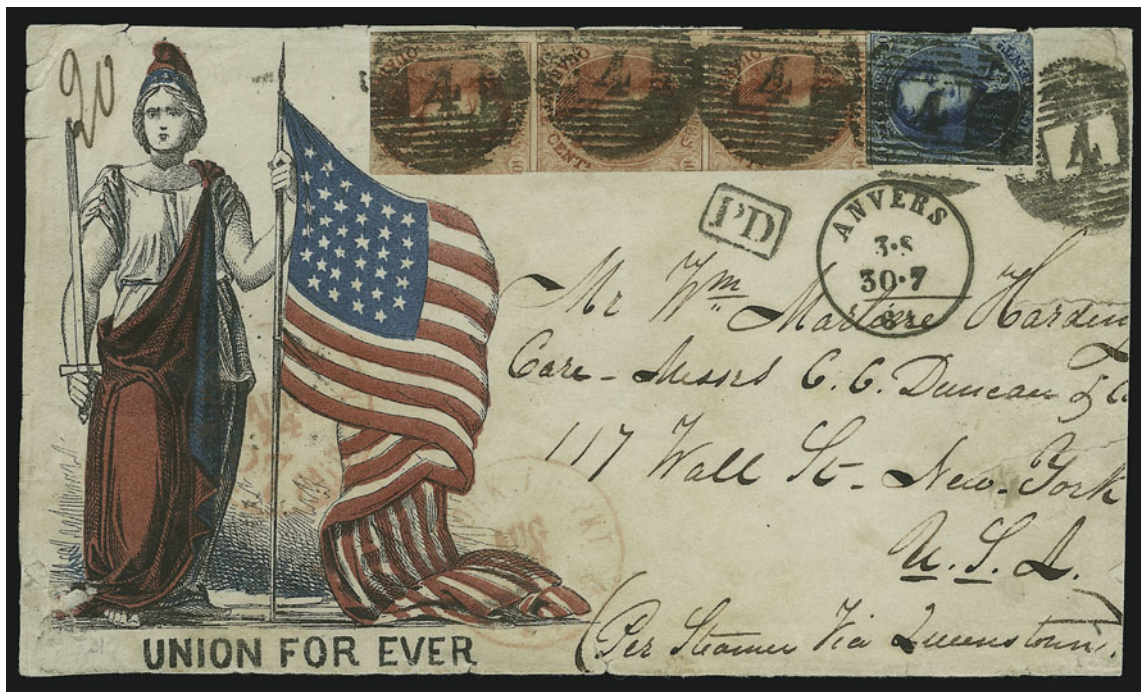 20
4 4 4 4 4
CENT
PD
ANVERS
3·S
30·7
Mr Wm Martine Harding
Care - Messrs C. C. Duncan & Co
117 Wall St - New-York
U. S. A.
(Per Steamer Via Queenstown)
UNION FOR EVER